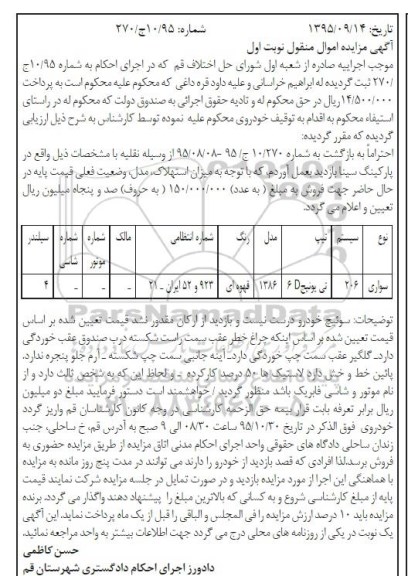 تاریخ: ۱۳۹۵/۰۹/۱۴ شماره: ۱۰/۹۵ج/۲۷۰
آگهی مزایده اموال منقول نوبت اول
موجب اجراییه صادره از شعبه اول شورای حل اختلاف قم که در اجرای احکام به شماره ۱۰/۹۵ج
/۲۷۰ ثبت گردیده له ابراهیم خراسانی و علیه داود قره داغی که محکوم علیه محکوم است به پرداخت
۱۴/۵۰۰/۰۰۰ ریال در حق محکوم له و تادیه حقوق اجرائی به صندوق دولت که محکوم له در راستای
استیفاء محکوم به اقدام به توقیف خودروی محکوم علیه نموده توسط کارشناس به شرح ذیل ارزیابی
گردیده که مقرر گردیده:
احتراماً به بازگشت به شماره ۱۰/۲۷۰ ج/ ۹۵ -۹۵/۰۸/۰۸ از وسیله نقلیه با مشخصات ذیل واقع در
پارکینگ سینا بازدید بعمل آوردم، که با توجه به میزان استهلاک، مدل، وضعیت فعلی قیمت پایه در
حال حاضر جهت فروش به مبلغ ( به عدد) ۱۵۰/۰۰۰/۰۰۰ ( به حروف) صد و پنجاه میلیون ریال
تعیین و اعلام می گردد.
نوع سیستم تیپ مدل رنگ شماره انتظامی مالک شماره موتور شماره شاسی سیلندر
سواری ۲۰۶ تی یونیج۶ D ۱۳۸۶ قهوه ای ۹۲۳ و ۵۲ ایران - ۲۱ - - - ۴
توضیحات: سوئیچ خودرو درست نیست و بازدید از ارکان مقدور نشد قیمت تعیین شده بر اساس
قیمت تعیین شده بر اساس اینکه چراغ خطر عقب سمت راست شکسته درب صندوق عقب خوردگی
دارد. گلگیر عقب سمت چپ خوردگی دارد- آینه جانبی سمت چپ شکسته - آرم جلو پنجره ندارد.
پائین خط و خش دارد لاستیک ها ۵۰ درصد کارکرده - و لحاظ این که به شخص ثالث دارد و از
نام موتور و شاسی فابریک باشد منظور گردید / خواهشمند است دستور فرمایید مبلغ دو میلیون
ریال برابر تعرفه بابت قرار بیمه حق الزحمه کارشناسی در وجه کانون کارشناسان قم واریز گردد
خودروی فوق الذکر در تاریخ ۹۵/۱۰/۳۰ ساعت ۰۸/۳۰ الی ۹ صبح به آدرس قم، خ ساحلی، جنب
زندان ساحلی دادگاه های حقوقی واحد اجرای احکام مدنی اتاق مزایده از طریق مزایده حضوری به
فروش برسد،لذا افرادی که قصد بازدید از خودرو را دارند می توانند در مدت پنج روز مانده به مزایده
با هماهنگی این اجرا از مورد مزایده بازدید و در صورت تمایل در جلسه مزایده شرکت نمایند قیمت
پایه از مبلغ کارشناسی شروع و به کسانی که بالاترین مبلغ را پیشنهاد دهند واگذار می گردد. برنده
مزایده باید ۱۰ درصد ارزش مزایده را فی المجلس و الباقی را قبل از یک ماه پرداخت نماید. این آگهی
یک نوبت در یکی از روزنامه های محلی درج می گردد جهت اطلاعات بیشتر به واحد مراجعه نمائید.
حسن کاظمی
دادورز اجرای احکام دادگستری شهرستان قم